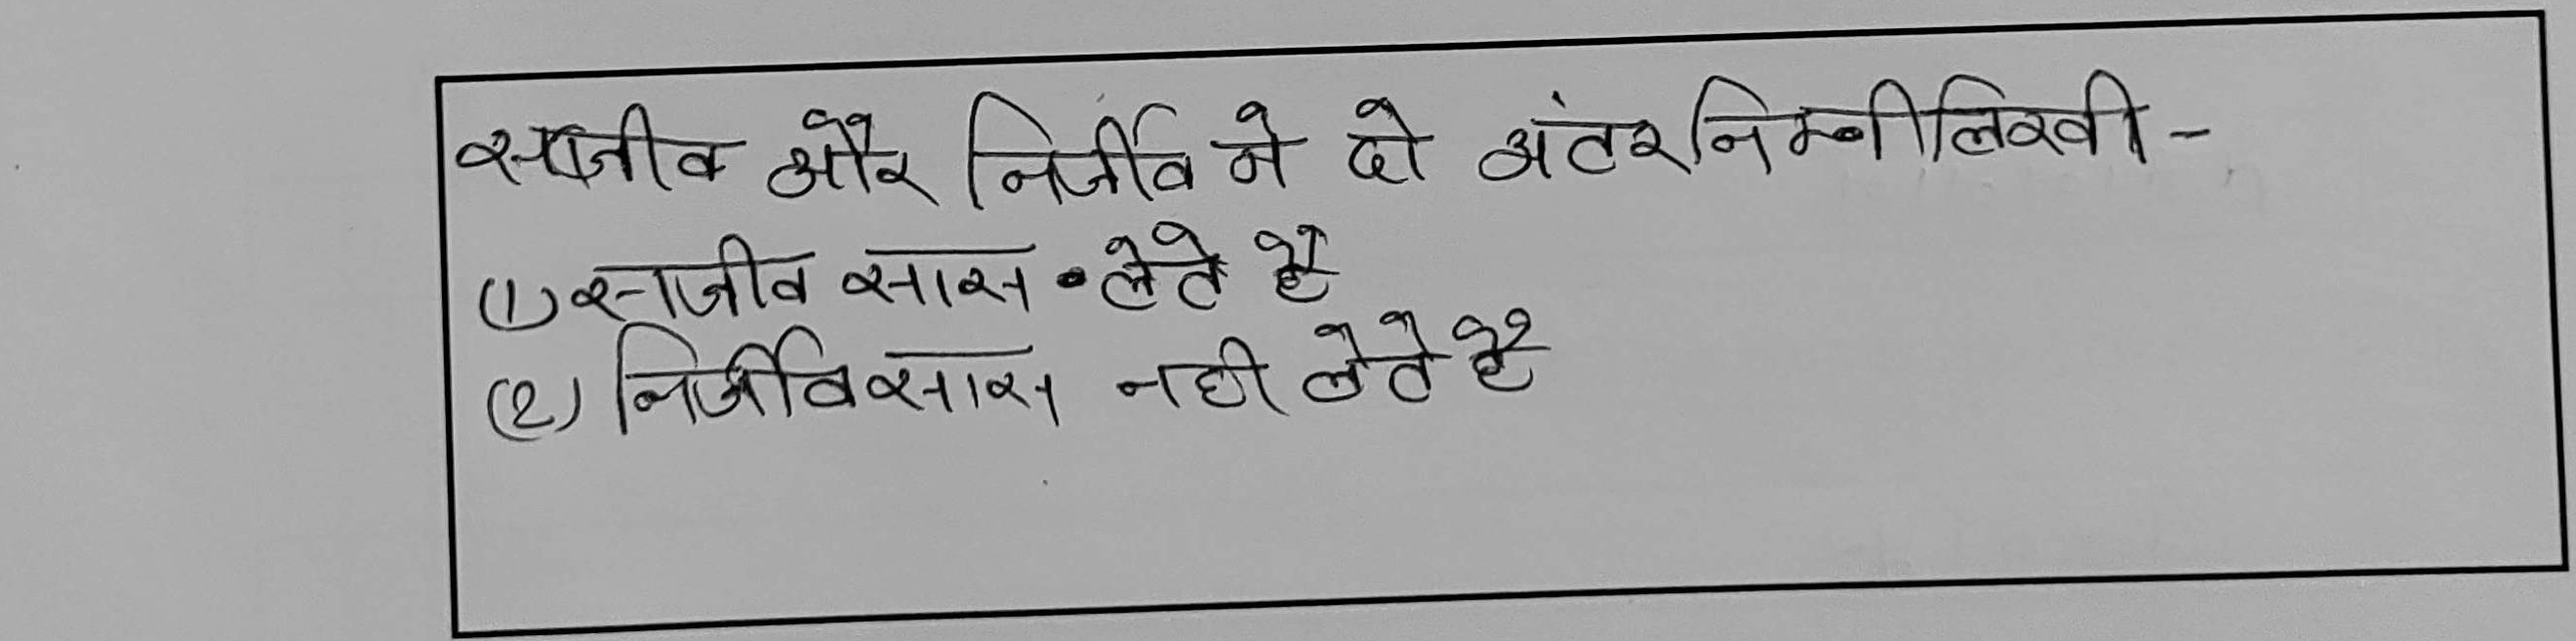 साजीव और निर्जीव ने दो अंतर निम्नीलिखी -
(1) साजीव सास लेते है
(2) निर्जीव सास नही लेते है